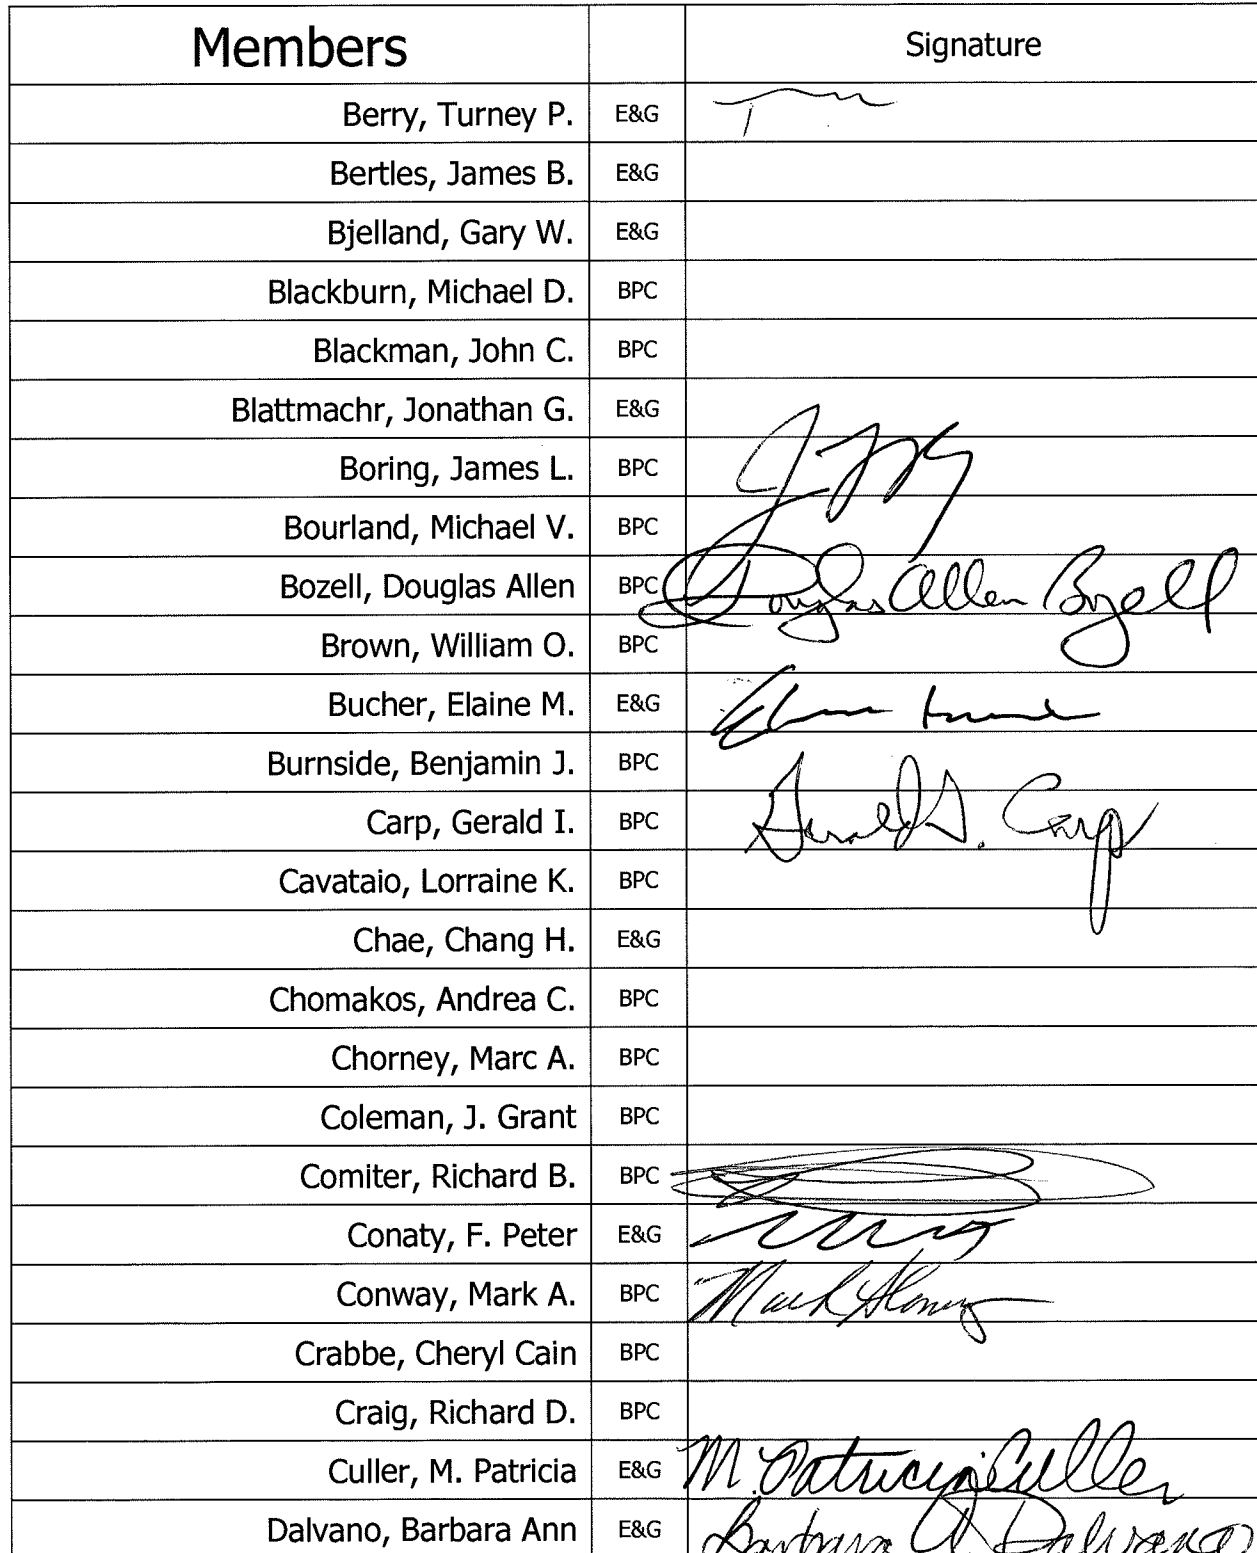 Members Signature
Berry, Turney P. E&G
Bertles, James B. E&G
Bjelland, Gary W. E&G
Blackburn, Michael D. BPC
Blackman, John C. BPC
Blattmachr, Jonathan G. E&G
Boring, James L. BPC
Bourland, Michael V. BPC
Bozell, Douglas Allen BPC Douglas Allen Bozell
Brown, William O. BPC
Bucher, Elaine M. E&G
Burnside, Benjamin J. BPC
Carp, Gerald I. BPC Gerald I. Carp
Cavataio, Lorraine K. BPC
Chae, Chang H. E&G
Chomakos, Andrea C. BPC
Chorney, Marc A. BPC
Coleman, J. Grant BPC
Comiter, Richard B. BPC
Conaty, F. Peter E&G
Conway, Mark A. BPC Mark
Crabbe, Cheryl Cain BPC
Craig, Richard D. BPC
Culler, M. Patricia E&G M. Patricia Culler
Dalvano, Barbara Ann E&G Barbara A Dalvano